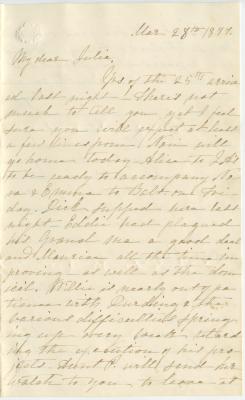 Mar 28th 1877.
My dear Julia,
Yrs of the 25th arriv
ed last night. There's not
much to tell you yet I feel
sure you will expect at least
a few lines from
go home today. Alice to
to be ready to accompany
& Emma to on Fri
day. Dick supped here last
night. Eddie had plagued
his Grand ma a good deal
and all the time im
proving as well as the
Willie is nearly out of pa
tience with & the
various difficulties spring
ing up every week retard
ing the execution of his pro
jects. Aunt will send
to you to leave at